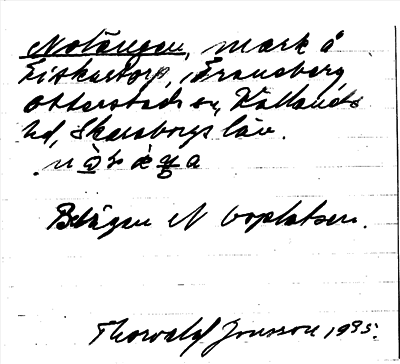 Notängen, mark å
Fiskartorp, Traneberg
Otterstads sn, Kållands
hd, Skaraborgs län.
Belägen N boplatsen.
Thorvald Jonsson 1935.